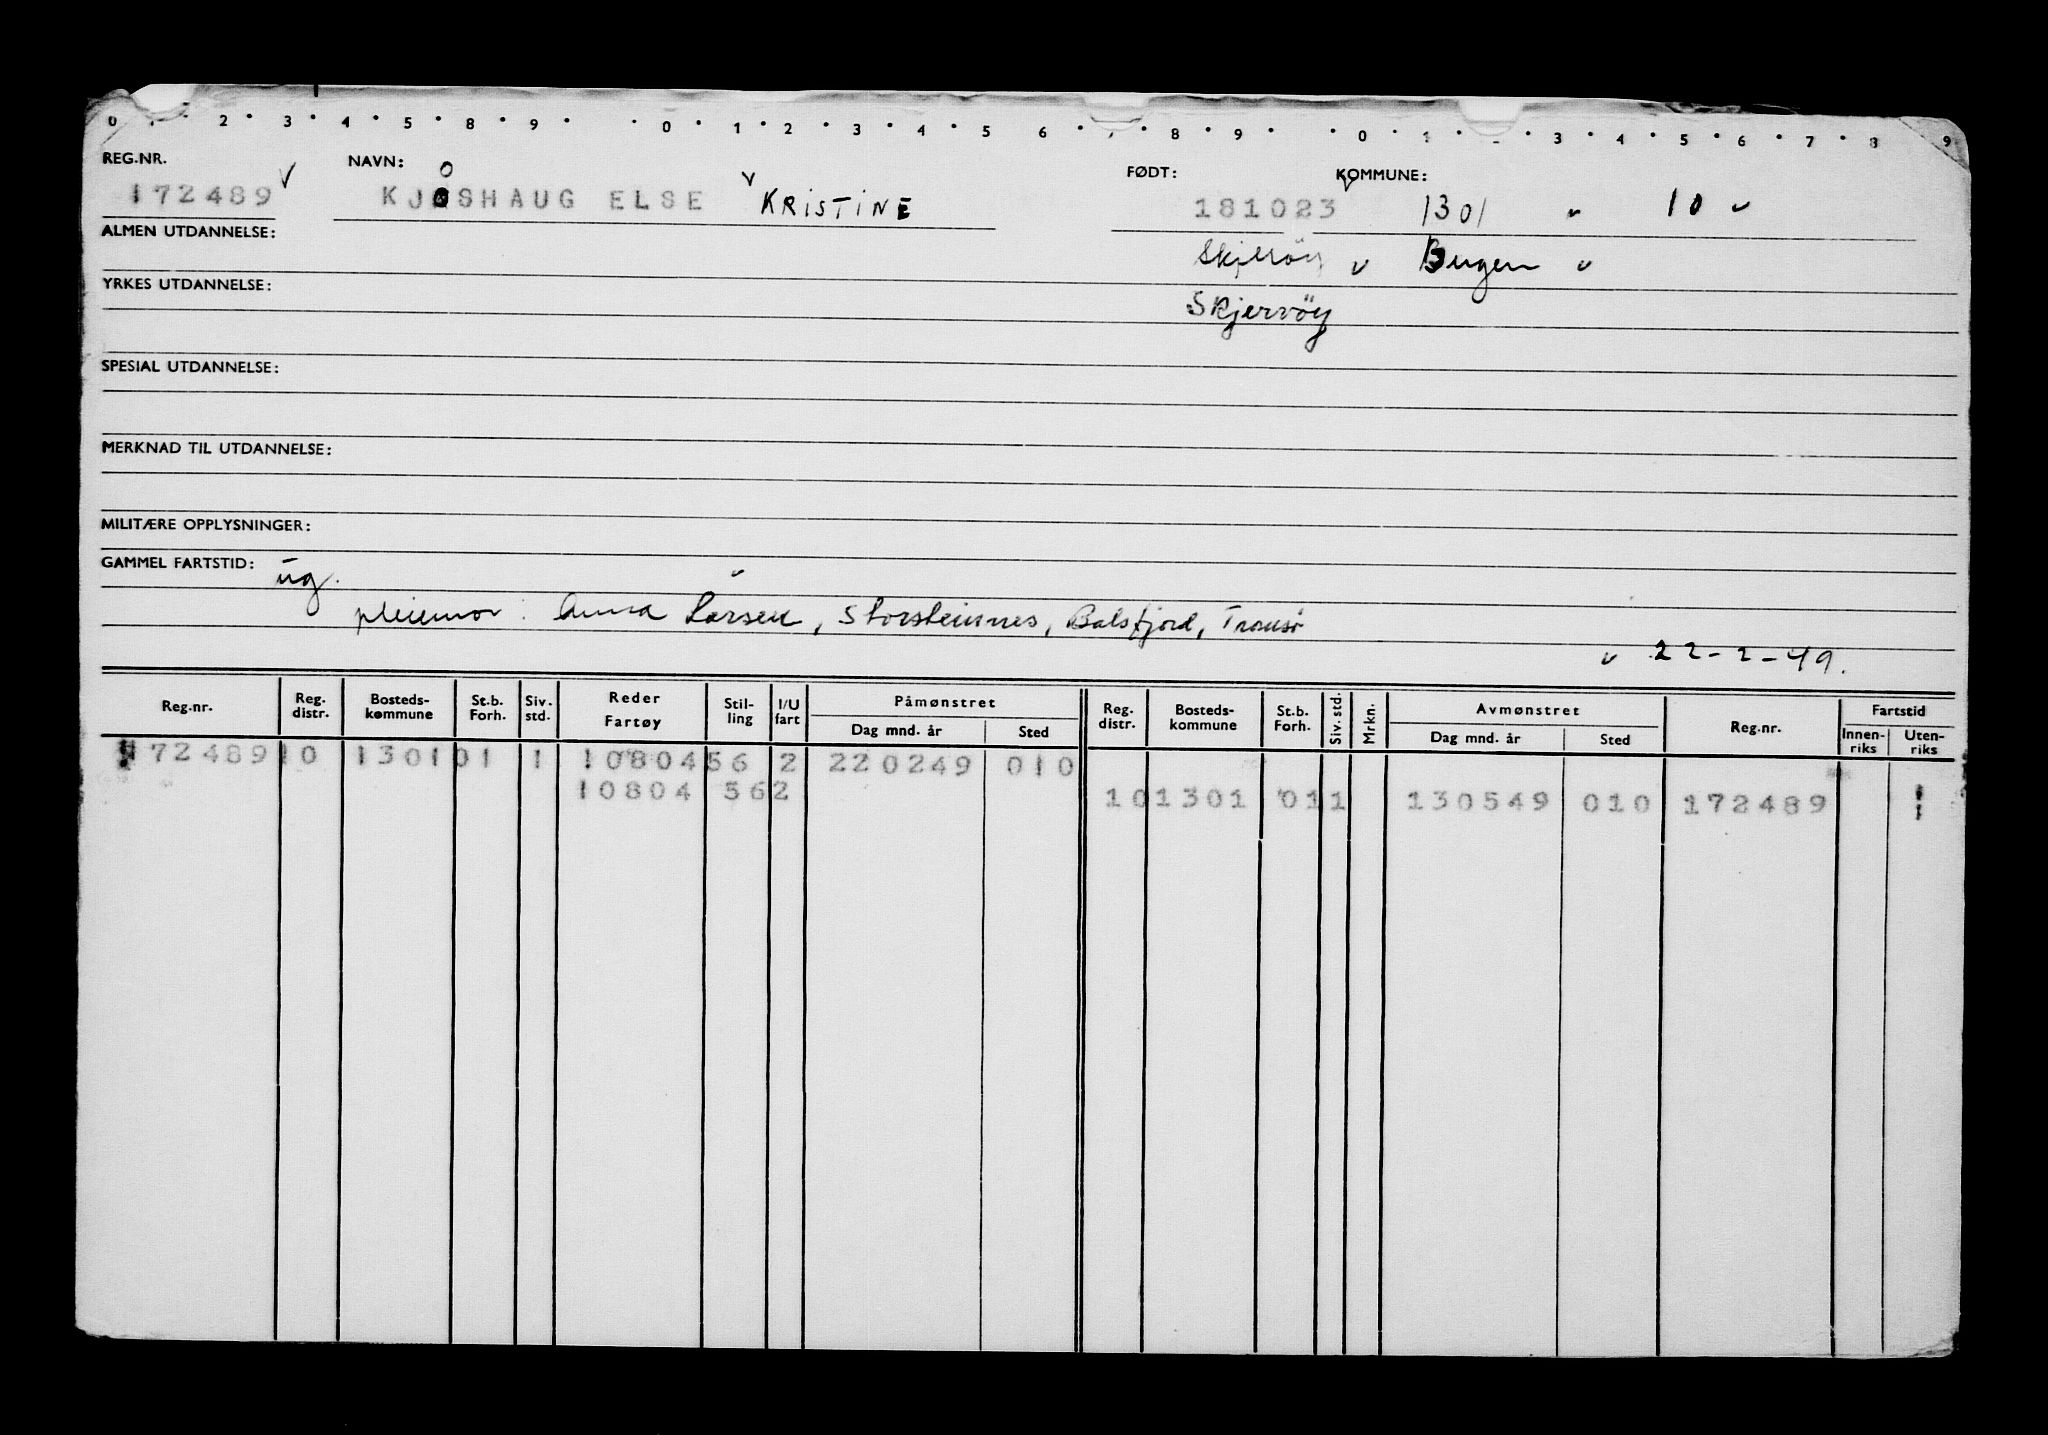 0 · 2 · 3 · 4 · 5 · 8 · 9 · · 0 · 1 · 2 · 3 · 4 · 5 6 · · 8 · 9 · · 0 · 1 · · 3 · 4 · 5 · 6 · 7 · 8 9
REG.NR. NAVN: FØDT: KOMMUNE:
O
172489 KJOSHAUG ELSE KRISTINE 181023 1301 10
ALMEN UTDANNELSE:
Bergen
YRKES UTDANNELSE:
Skjervöy
SPESIAL UTDANNELSE:
MERKNAD TIL UTDANNELSE:
MILITÆRE OPPLYSNINGER:
GAMMEL FARTSTID: ug.
pleiemor: Anna Larsen, Storsteinnes, Balsfjord, Tromsö
22-2-49.
Reg.nr. Reg. distr. Bosteds-kommune St.b. Forh. Siv. std. Reder Fartøy Stil-ling I/U fart Påmønstret Dag mnd. år Sted Reg. distr. Bosteds-kommune St.b. Forh. Siv. std. Mrkn. Avmønstret Dag mnd. år Sted Reg.nr. Fartstid Innen-riks Uten-riks
172489 10 1301 01 1 10804 56 2 220249 010
10804 56 2 10 1301 01 1 130549 010 172489